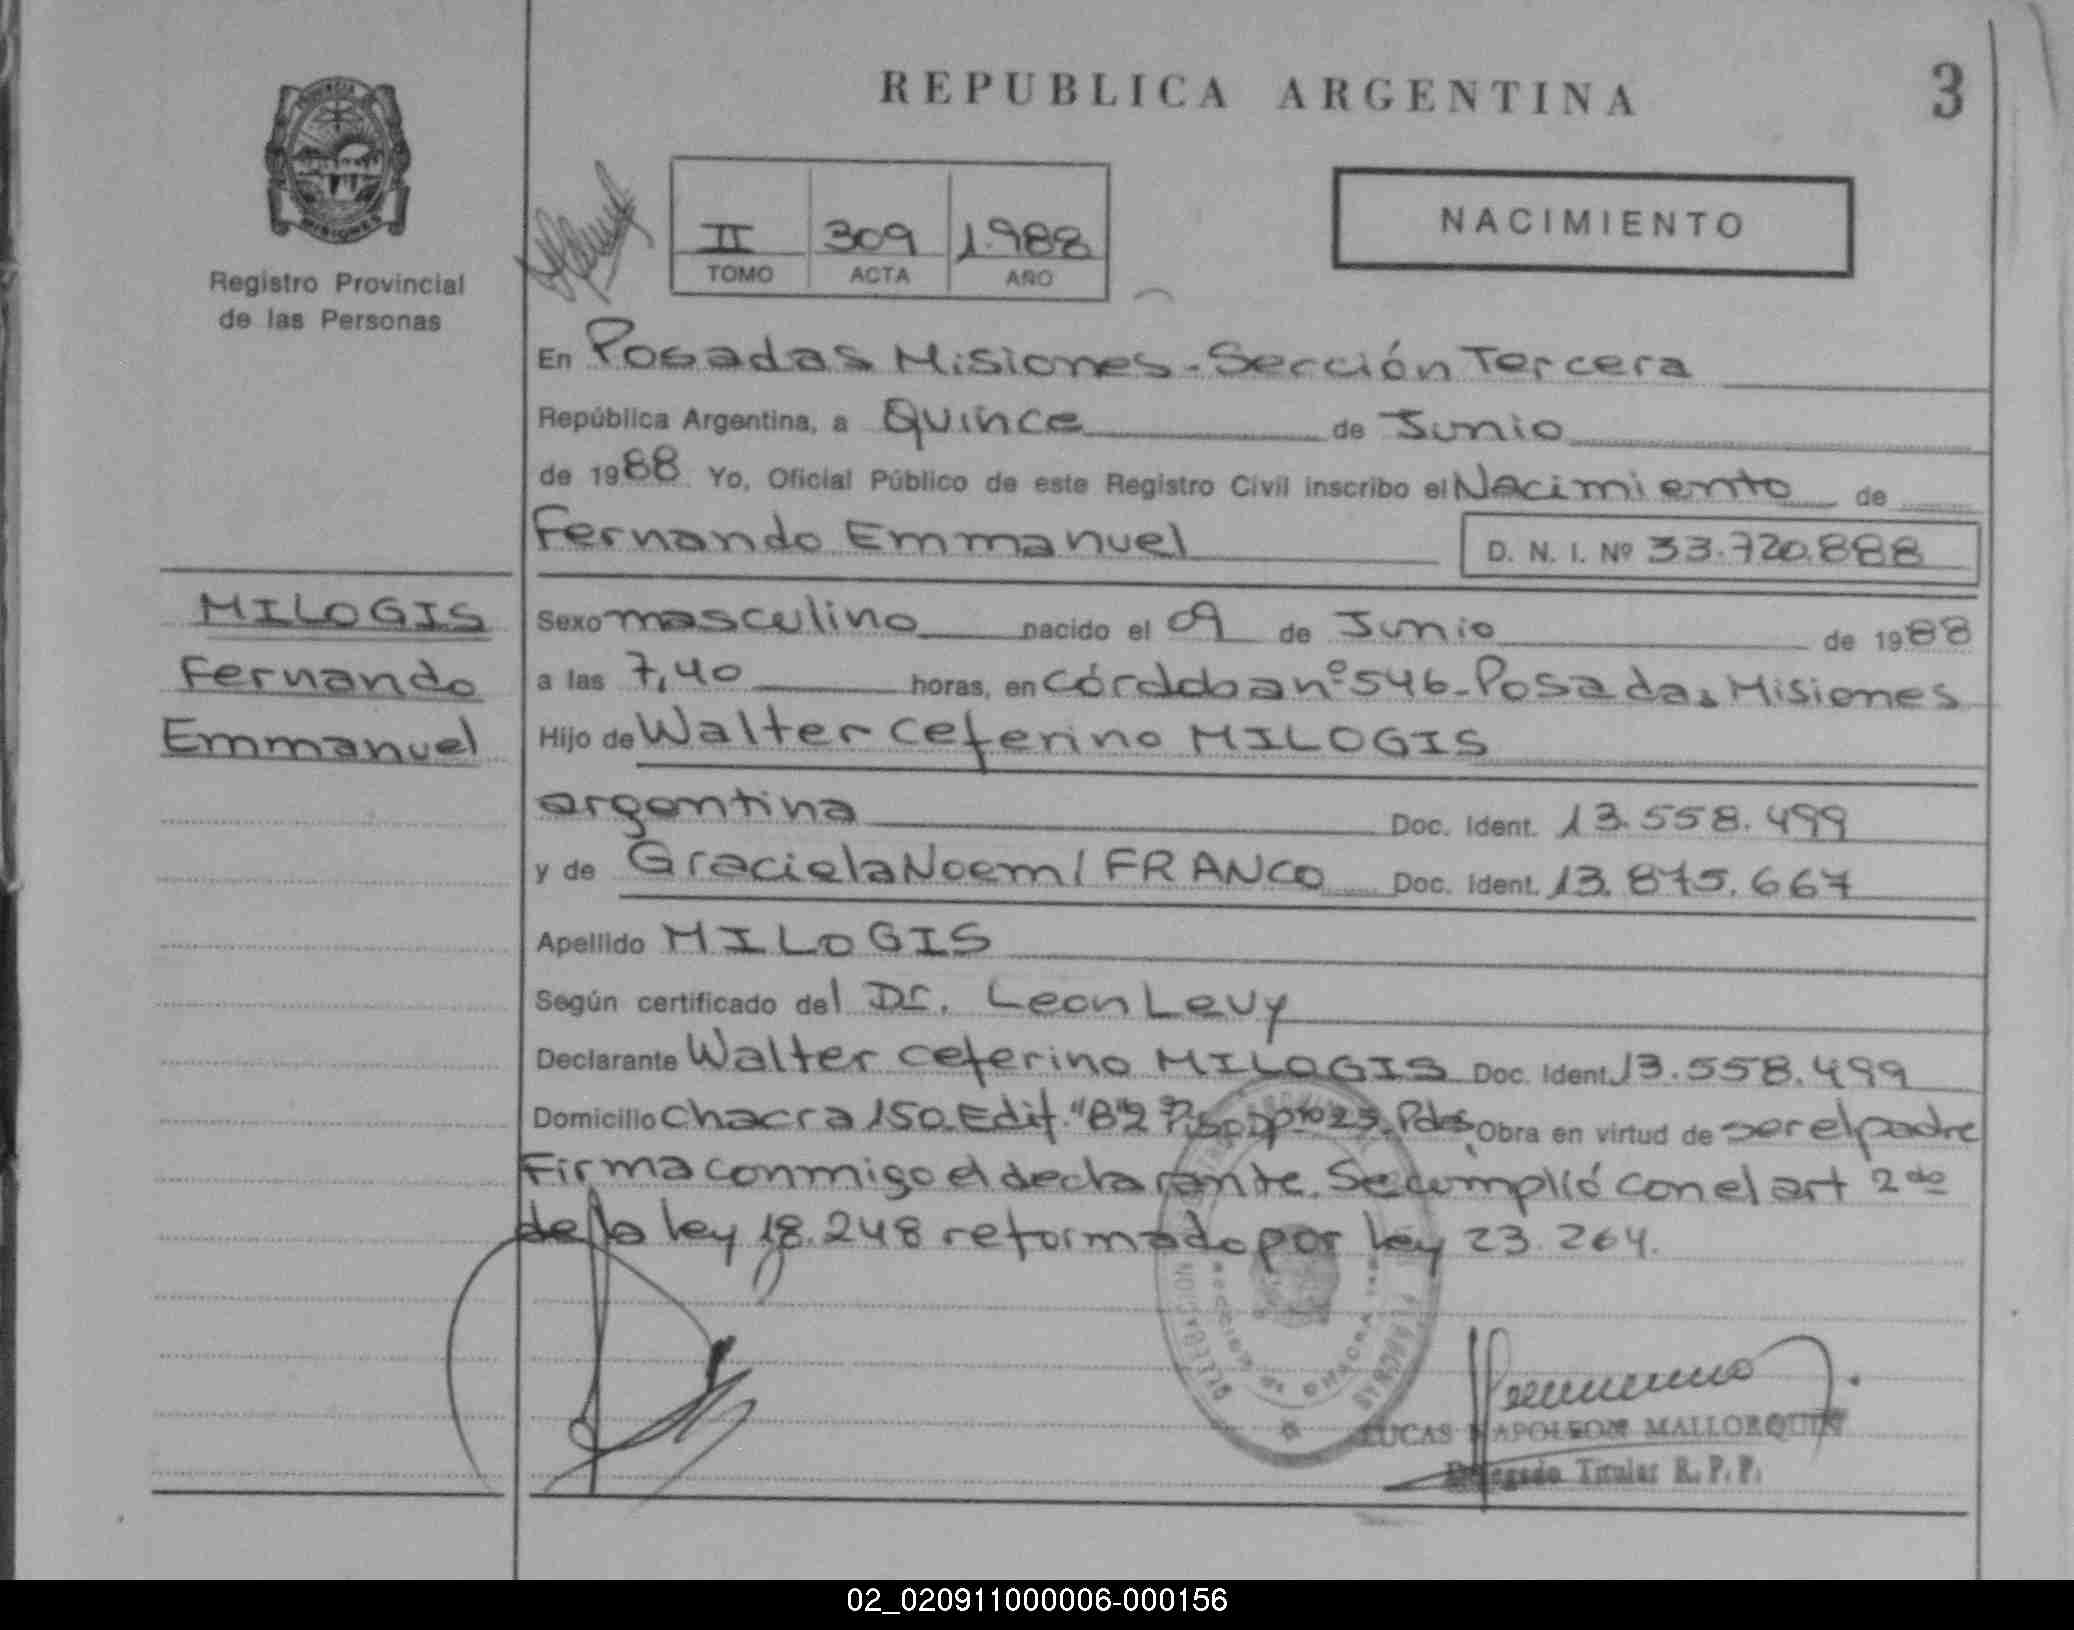 REPUBLICA ARGENTINA
3
PROVINCIA DE MISIONES
Registro Provincial
de las Personas
II 309 1.988
TOMO ACTA AÑO
NACIMIENTO
En Posadas Misiones - Sección Tercera
República Argentina, a Quince de Junio
de 1988 Yo, Oficial Público de este Registro Civil inscribo el Nacimiento de
Fernando Emmanuel D. N. I. Nº 33.720.888
MILOGIS
Fernando
Emmanuel
Sexo masculino nacido el 09 de Junio de 1988
a las 7,40 horas, en Córdoba nº 546 - Posadas Misiones
Hijo de Walter Ceferino MILOGIS
argentina Doc. Ident. 13.558.499
y de Graciela Noemí FRANCO Doc. Ident. 13.875.667
Apellido MILOGIS
Según certificado del Dr. Leon Levy
Declarante Walter Ceferino MILOGIS Doc. Ident. 13.558.499
Domicilio Chacra 150. Edif. "B" 2º Piso Dpto 23. Pdas Obra en virtud de ser el padre
Firma conmigo el declarante. Se cumplió con el art 2do
de la ley 18.248 reformado por ley 23.264.
DELEGACION
LUCAS NAPOLEON MALLORQUIN
Delegado Titular R. P. P.
02_020911000006-000156